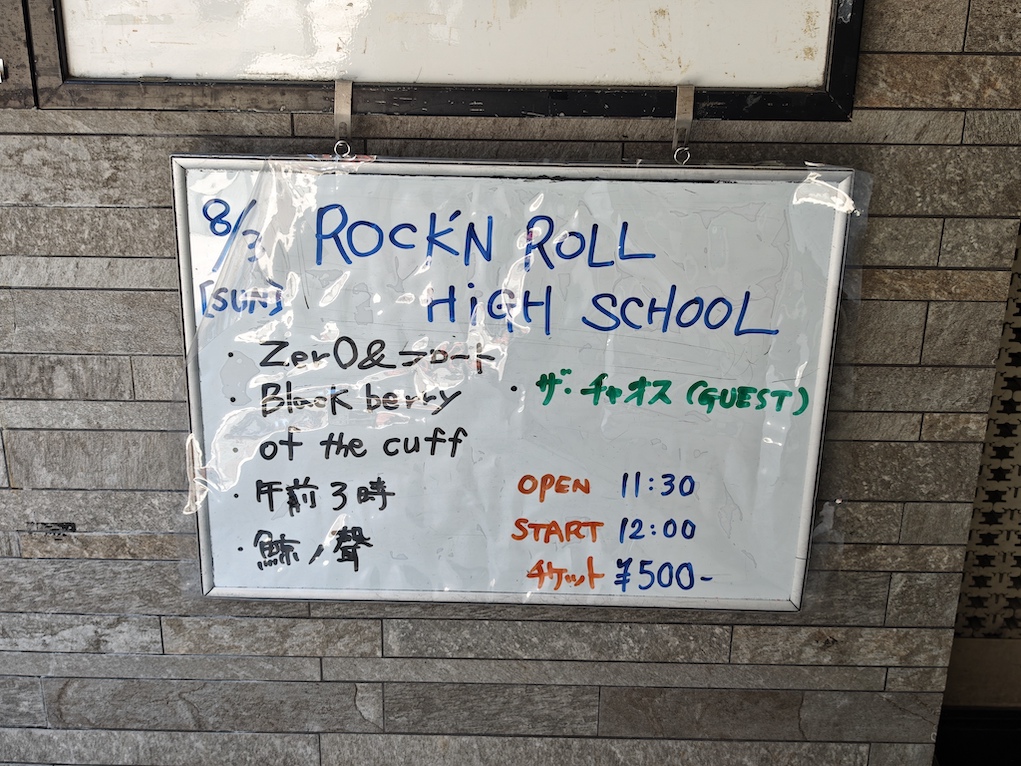 8/3 ROCK'N ROLL
[SUN] HiGH SCHOOL
・Zer0&フロート
・Black berry
・of the cuff
・午前3時
・鯨ノ聲
・ザ・チャオス (GUEST)
OPEN 11:30
START 12:00
チケット ¥500-